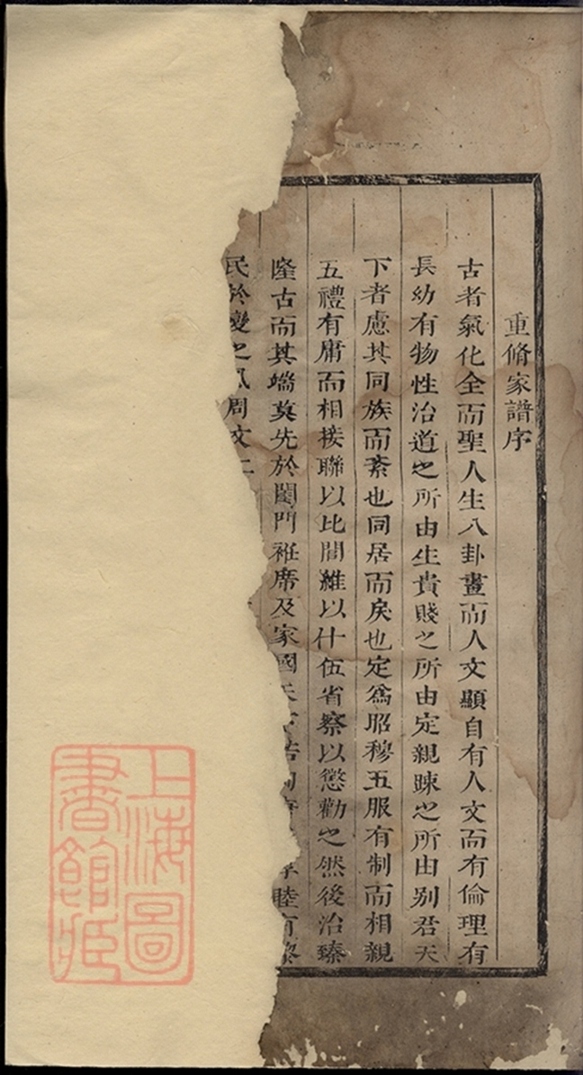 重脩家譜序
古者氣化全而聖人生八卦畫而人文顯自有人文而有倫理有
長幼有物性治道之所由生貴賤之所由定親踈之所由别君天
下者慮其同族而紊也同居而戾也定為昭穆五服有制而相親
五禮有庸而相接聯以比閭維以什伍省察以懲勸之然後治臻
隆古而其端莫先於閨門袵席及家國睦有黎
民於變之周文二
上海圖
書館藏